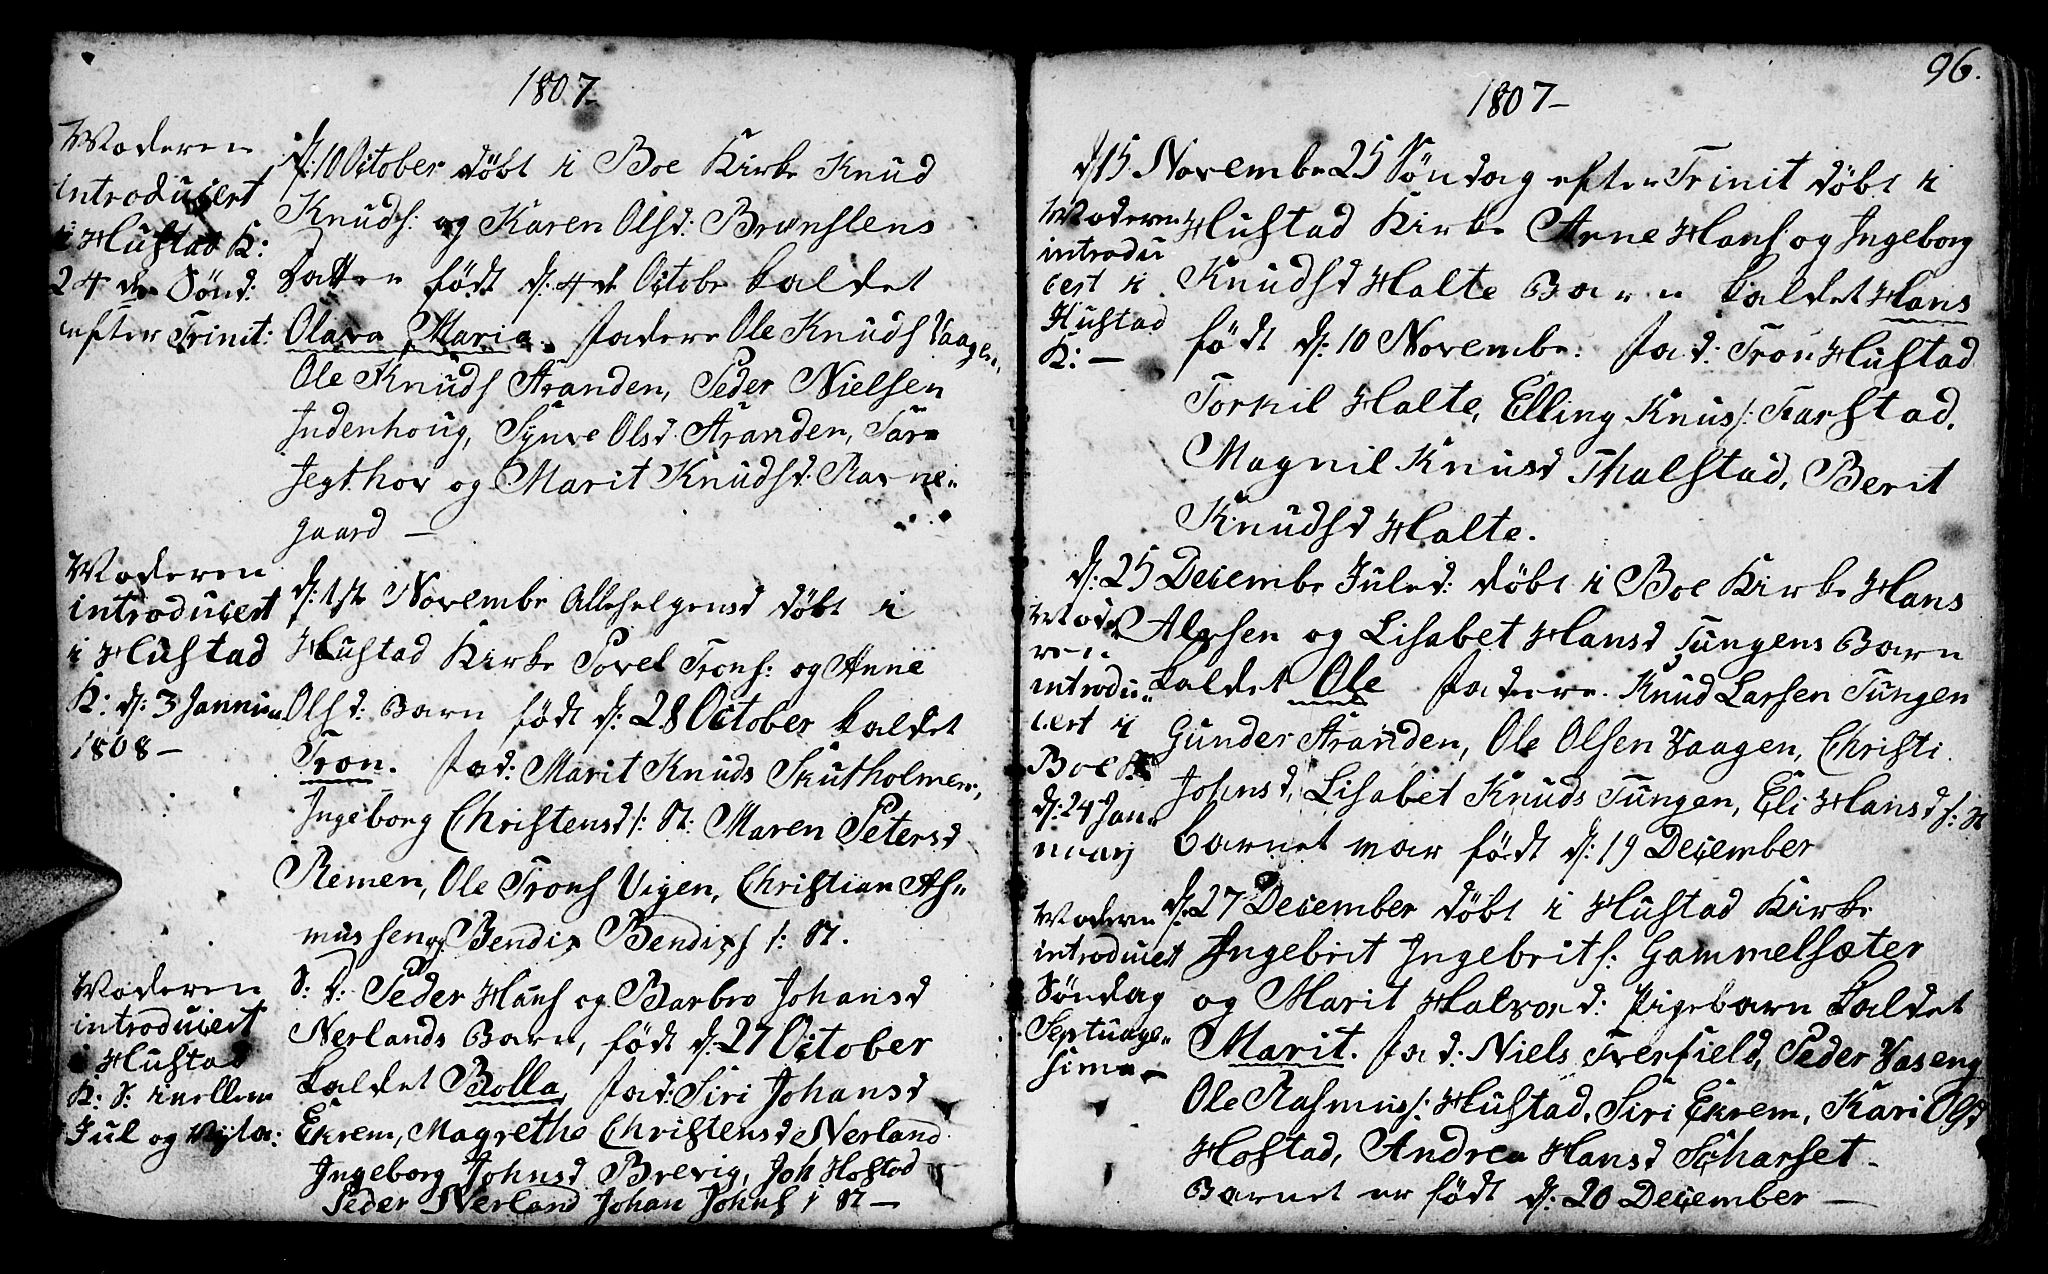 1807
Moderen
introducert
i Hustad K:
24de Sönd:
efter Trinit:
d: 10 October döbt i Boe Kirke Knud
Knuds: og Karen Olsd:
Datter födt d: 4de Octobr kaldet
Olava Maria. Fadere Ole Knuds Vaagen,
Ole Knuds Stranden, Peder Nielsen
Indenhoug, Synve Olsd. Stranden,
og Marit Knudsd: Ravne-
gaard —
Moderen
introducert
i Hustad
K: d: 3 Januar
1808 —
d: 1ste Novembr Allehelgensd döbt i
Hustad Kirke Povel Trons: og Anne
Olsd: Barn födt d: 28 October kaldet
Tron. Fad: Marit Knuds Skutholmen,
Ingeborg Christensd /: St: Maren Petersd
Remen, Ole Trons Vigen, Christian As-
mussen og Bendix Bendixs /: St.
Moderen
introducert
i Hustad
K: S: imellem
Jul og Nyta:
S: D: Peder Hans og Barbro Johansd
Nerlands Barn, födt d: 27 October
kaldet Bolla, Fad: Siri Johansd
Ekrem, Magrethe Christensd Nerland
Ingeborg Johnsd Brevig, Joh Hostad
Peder Nerland Johan Johns /: St —
96.
1807 —
d 15 Novembr 25 Söndag efter Trinit döbt i
Moderen
introdu
cert i
Hustad
K: —
Hustad Kirke Arne Hans og Ingeborg
Knudsd Halte Barn kaldet Hans
födt d: 10 Novembr: Fad: Tron Hustad
Torkil Halte, Elling Knus /: Farstad,
Magnil Knusd Thalstad, Berit
Knudsd Halte.
d: 25 Decembr Juled: döbt i Boe Kirke Hans
Mode
ren
introdu-
cert i
Boe K
d: 24 Jan-
nuarij
Alexsen og Lisabet Hansd Tungens Barn
kaldet Ole Fadere Knud Larsen Tungen
Gunder Stranden, Ole Olsen Vaagen, Christi
Johnsd, Lisabet Knuds Tungen, Eli Hansd /: St
barnet war födt d: 19 December
Moderen
introducert
Söndag
Septuage-
sima —
d: 27 December döbt i Hustad Kirke
Ingebrit Ingebrits: Gammelsæter
og Marit Halvord: Pigebarn kaldet
Marit. Fad: Niels Tverfield, Peder Vaseng
Ole Rasmus /: Hustad, Siri Ekrem, Kari Olsd
Hostad, Andrea Hansd Scharset
Barnet er födt d: 20 December —